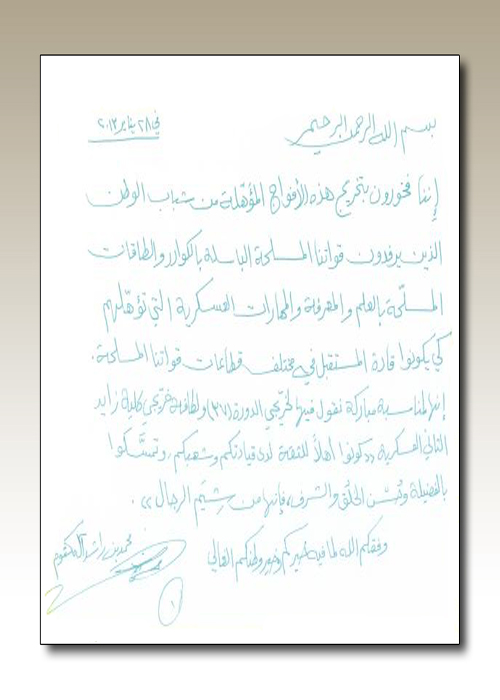 بسم الله الرحمن الرحيم
في ٢٨ يناير ٢٠١٣
إننا فخورون بتخريج هذه الأفواج المؤهلة من شباب الوطن
الذين يرفدون قواتنا المسلحة الباسلة بالكوادر والطاقات
المسلّحة بالعلم والمعرفة والمهارات العسكرية التي تؤهلهم
كي يكونوا قادة المستقبل في مختلف قطاعات قواتنا المسلحة.
إنها لمناسبة مباركة نقول فيها لخريجي الدورة (٣٧) ولكافة خريجي كلية زايد
الثاني العسكرية «كونوا أهلاً للثقة لدى قيادتكم وشعبكم، وتمسّكوا
بالفضيلة وحُسن الخلُق والشرف، فإنها من شِيَم الرجال».
وفقكم الله لما فيه خيركم وخير وطنكم الغالي
محمد بن راشد آل مكتوم
١